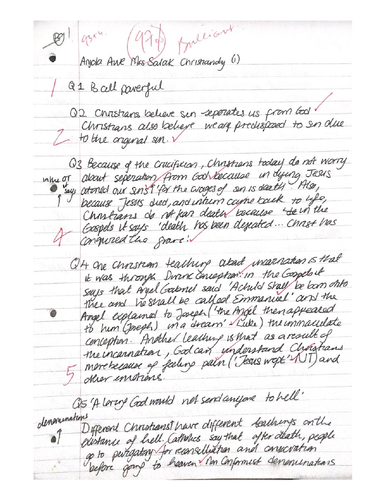 97%
Brilliant
Anjola Awe Mrs Salak Christianity (1)
1 Q1 B all powerful
Q2 Christians believe sin seperates us from God
2 Christians also believe we are predisposed to sin due
to the original sin.
Q3 Because of the crucifixion, Christians today do not worry
about seperation from God because in dying Jesus
atoned our sins 'for the wages of sin is death' Also,
because Jesus died, and came back to life,
Christians do not fear death because in the
Gospels it says 'death has been defeated... Christ has
4 conquered the grave'.
Q4 One Christian teaching about incarnation is that
it was through Divine Conception in the Gospels it
says that Angel Gabriel said 'A child shall be born unto
thee and he shall be called Emmanuel' and the
Angel explained to Joseph ('the Angel then appeared
to him (Joseph) in a dream' Luke) the immaculate
conception. Another teaching is that as a result of
the incarnation, God can understand Christians
5 more because of feeling pain ('Jesus wept' NT) and
other emotions.
Q5 'A loving God would not send anyone to hell'
denominations
Different Christians have different teachings on the
existence of hell. Catholics say that after death, people
go to purgatory for reconciliation and
before going to heaven. Non Conformist denominations